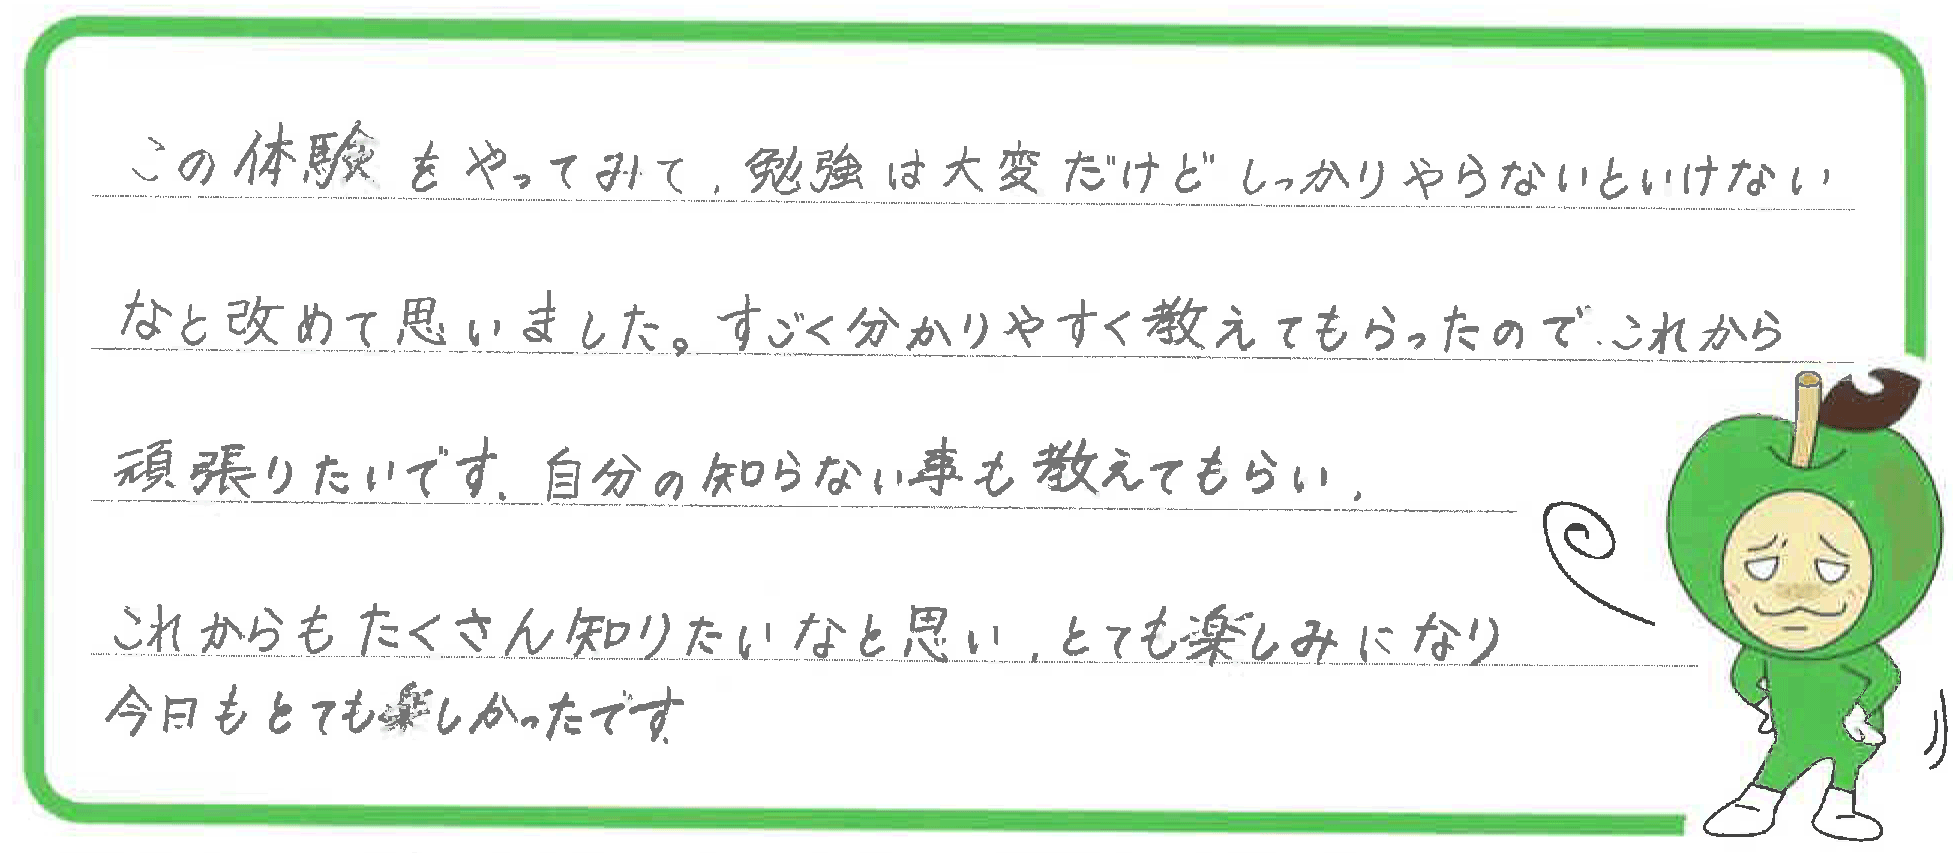 この体験をやってみて、勉強は大変だけどしっかりやらないといけない
なと改めて思いました。すごく分かりやすく教えてもらったので、これから
頑張りたいです。自分の知らない事も教えてもらい、
これからもたくさん知りたいなと思い、とても楽しみになり
今日もとても楽しかったです。